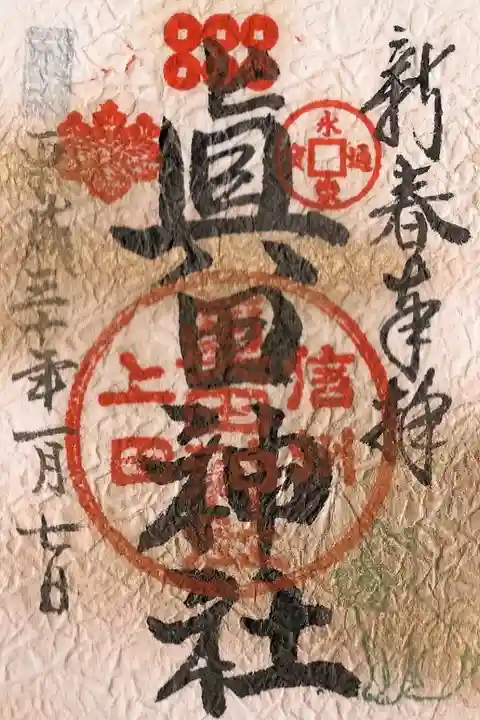 新春奉拝
眞田神社
平成三十年一月七日
永通寳
信州
上田
眞田神社